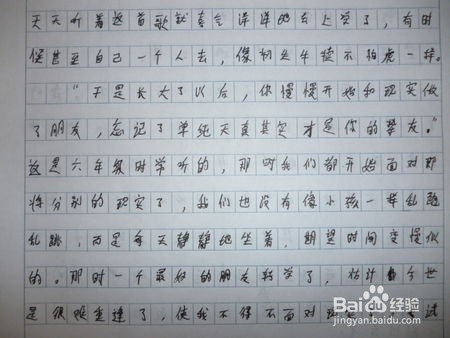 天天听着这首歌就喜气洋洋地去上学了，有时
候甚至自己一个人去，像初生牛犊不怕虎一样。
“于是长大了以后，你慢慢开始和现实做
了朋友，忘记了单纯天真其实才是你的挚友。”
这是六年级时学听的，那时我们都开始面对即
将分别的现实了，我们也没有像小孩一样乱跑
乱跳，而是每天静静地坐着，期望时间变慢似
的。那时一个最好的朋友转学了，估计今世
是很难重逢了，使我不得不面对现 试
Baidu百度经验
jingyan.baidu.com